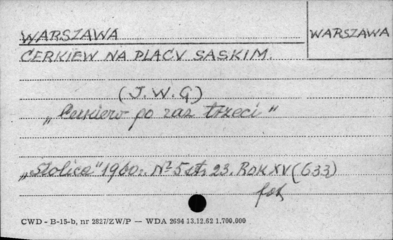 WARSZAWA
WARSZAWA
CERKIEW NA PLACU SASKIM.
(J. W. G.)
„Cerkiew po raz trzeci"
„Stolica" 1960 r. Nº 5 str 23. ROK XV (633)
CWD - B-15-b, nr 2827/ZW/P — WDA 2694 13.12.62 1.700.000